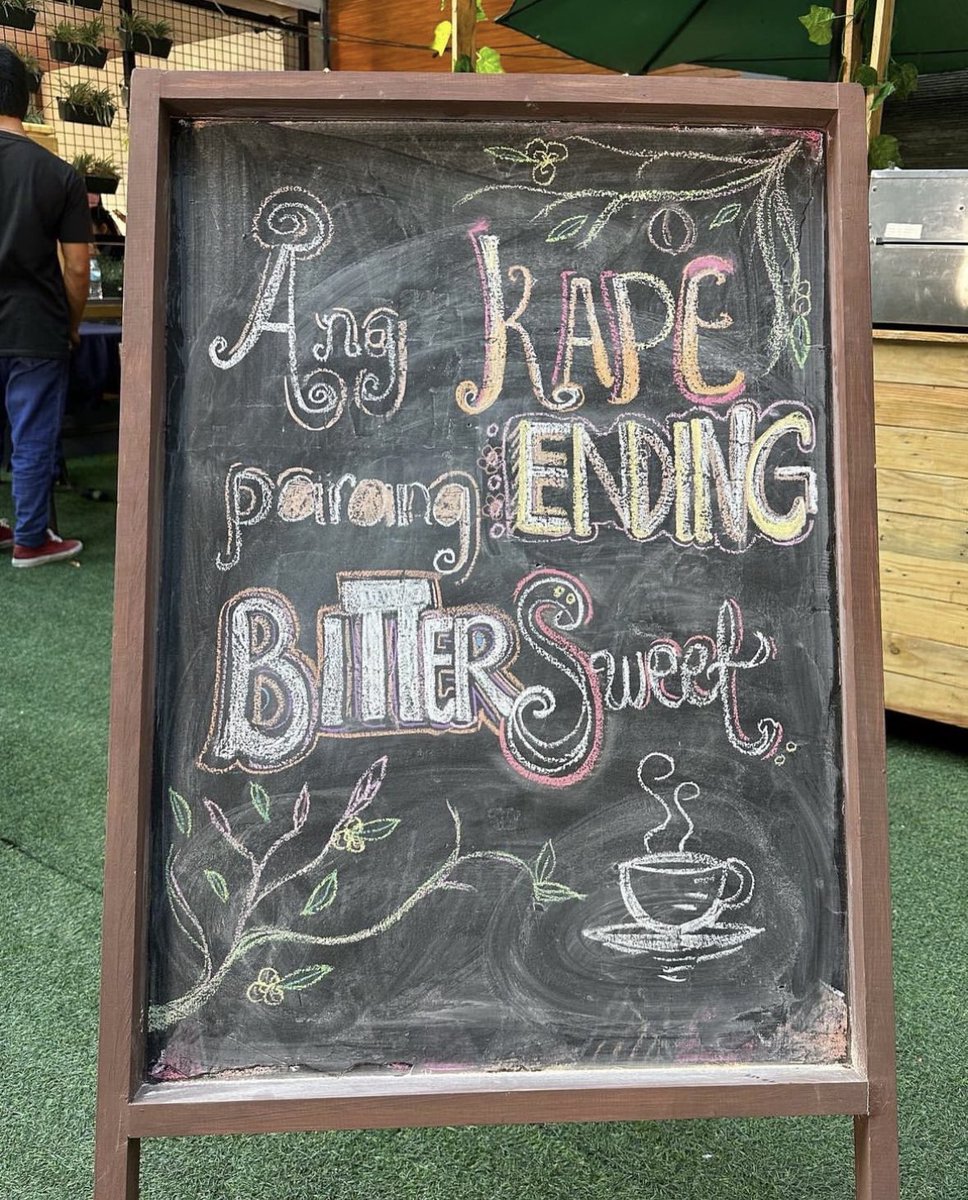 Ang KAPE
parang ENDING
BITTERSweet